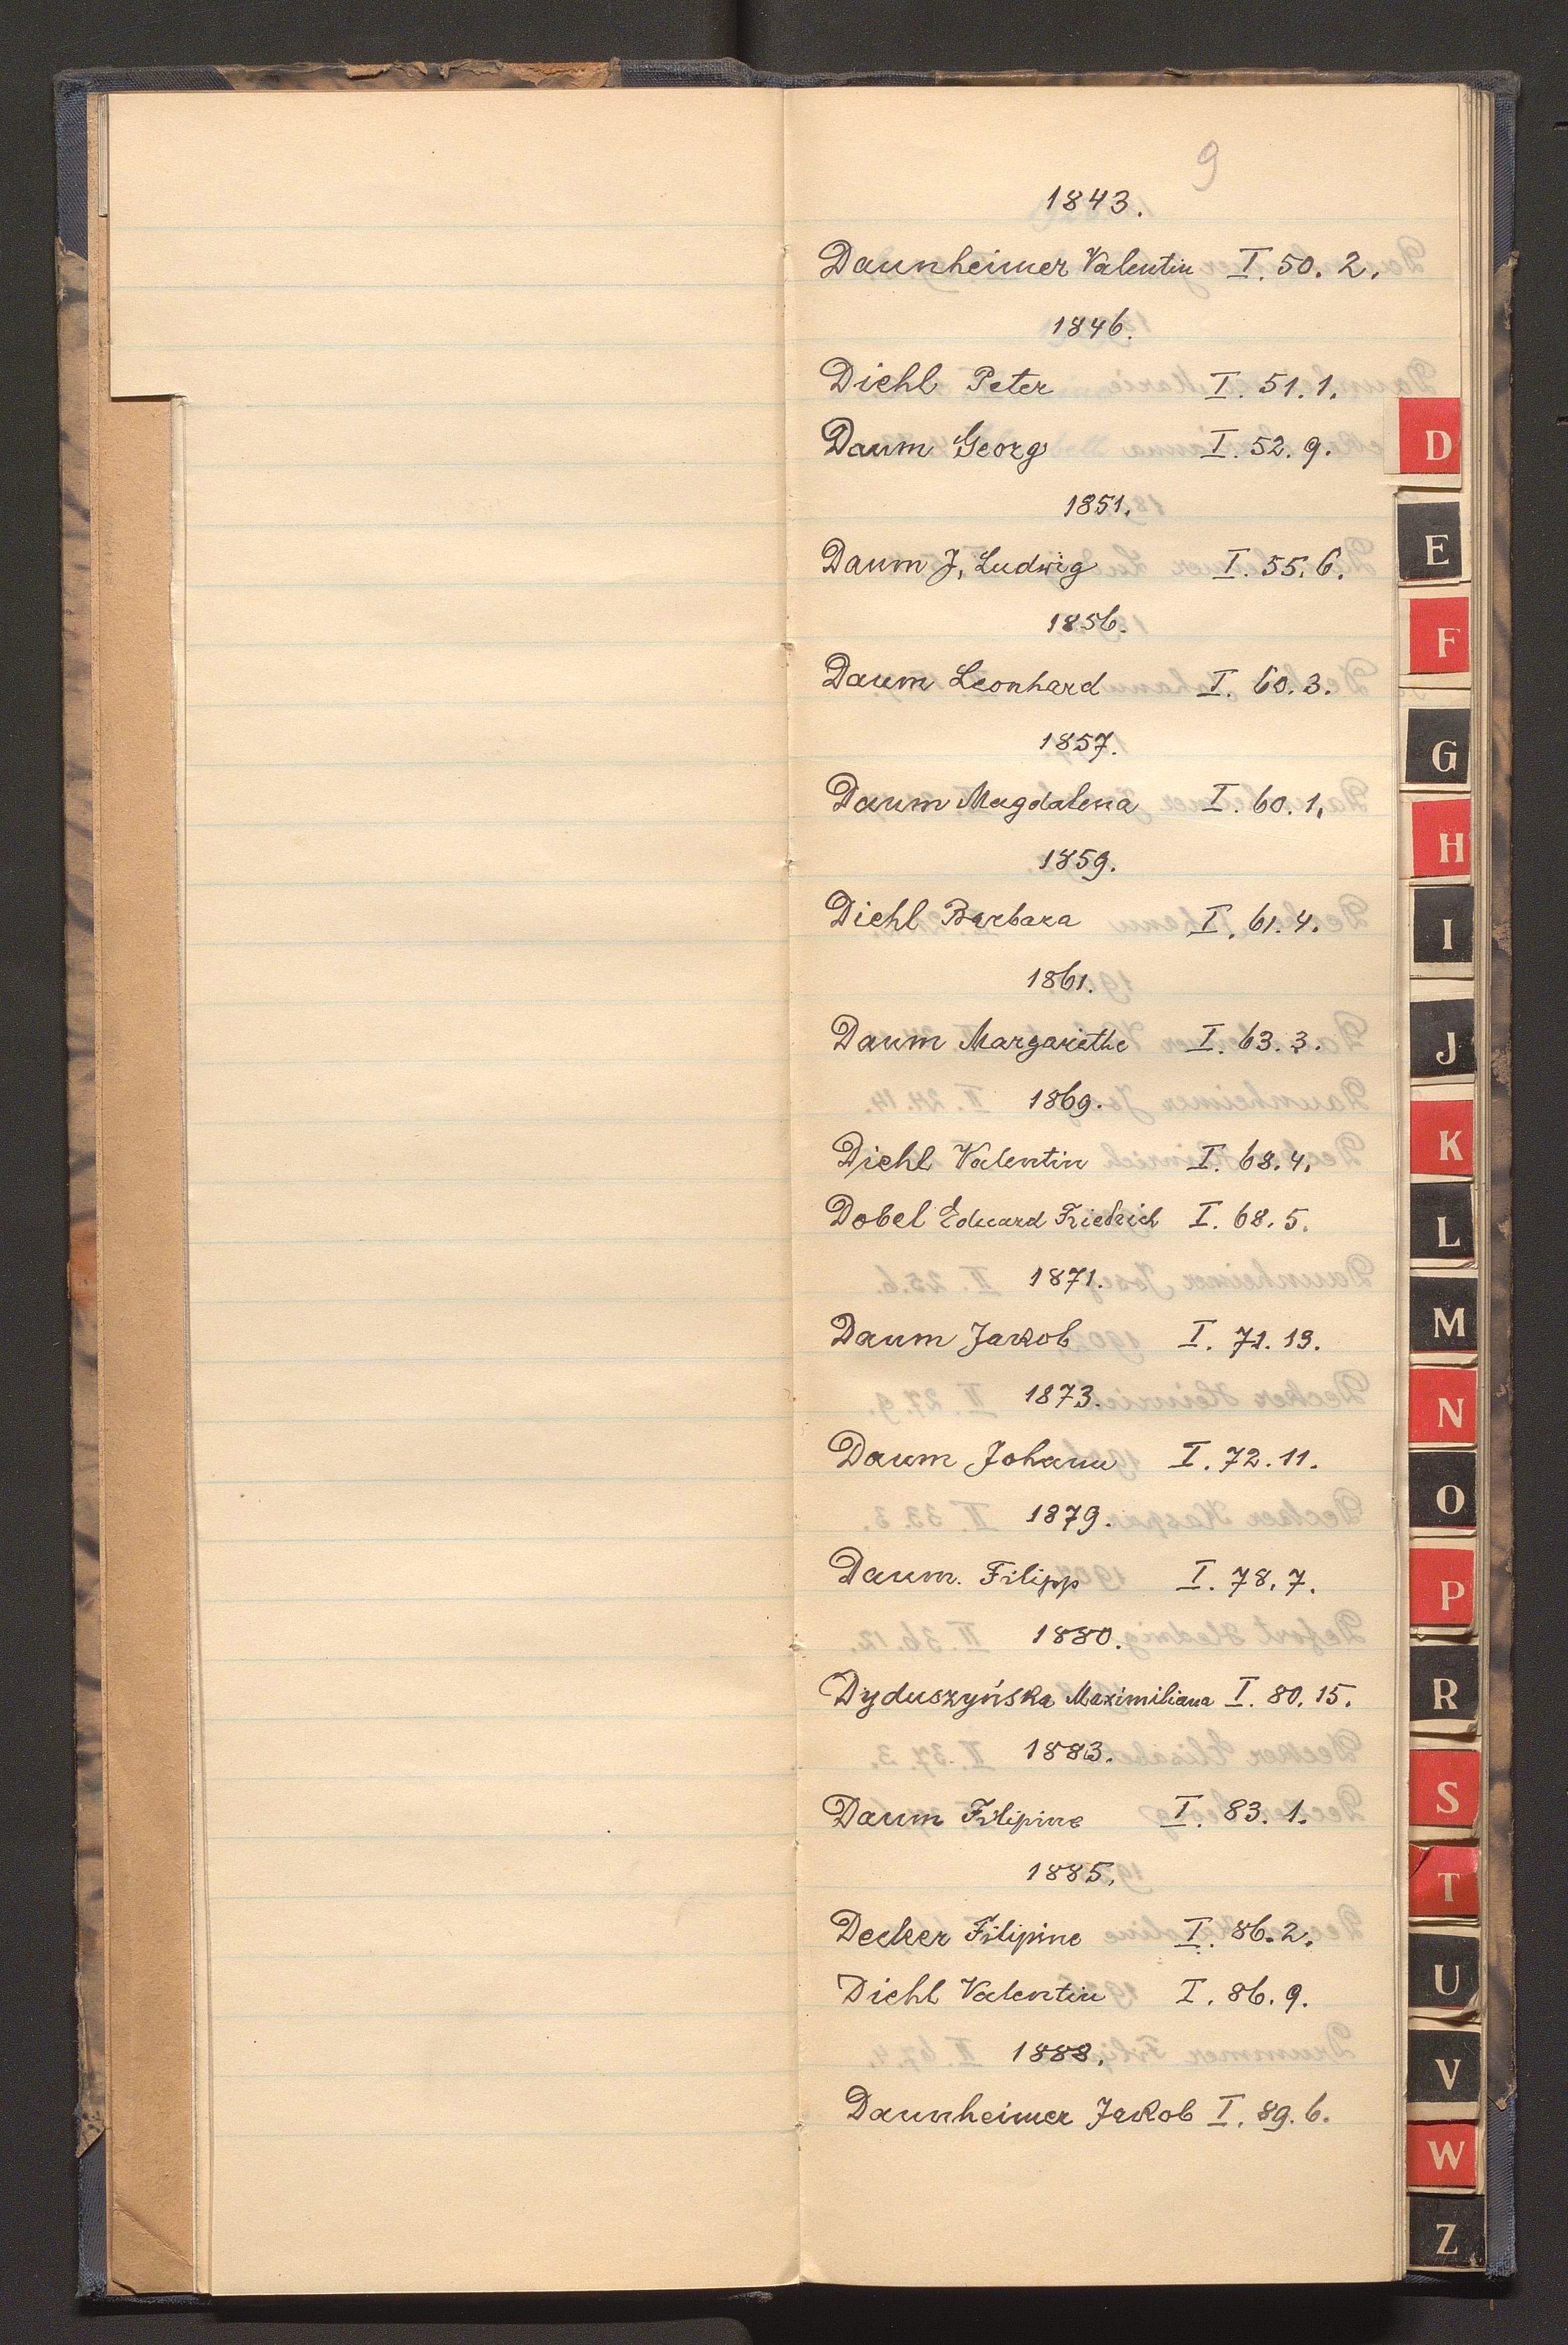 9
1843.
Daunheimer Valentin I. 50. 2.
1846.
Diehl Peter I. 51. 1.
Daum Georg I. 52. 9.
1851.
Daum J. Ludwig I. 55. 6.
1856.
Daum Leonhard I. 60. 3.
1857.
Daum Magdalena I. 60. 1.
1859.
Diehl Barbara I. 61. 4.
1861.
Daum Margarethe I. 63. 3.
1869.
Diehl Valentin I. 68. 4.
Dobel Eduard Friedrich I. 68. 5.
1871.
Daum Jakob I. 71. 13.
1873.
Daum Johann I. 72. 11.
1879.
Daum Filipp I. 78. 7.
1880.
Dyduszyńska Maximiliana I. 80. 15.
1883.
Daum Filipine I. 83. 1.
1885.
Decker Filipine I. 86. 2.
Diehl Valentin I. 86. 9.
1888.
Daunheimer Jakob I. 89. 6.
D
E
F
G
H
I
J
K
L
M
N
O
P
R
S
T
U
V
W
Z